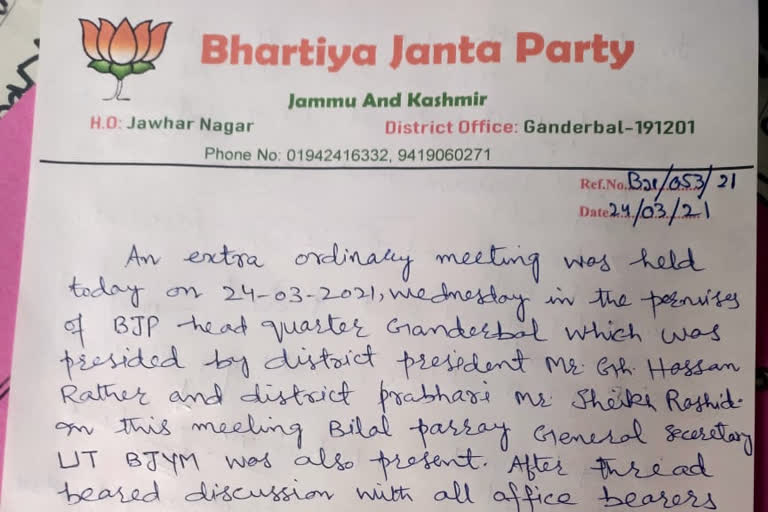 Bhartiya Janta Party
Jammu And Kashmir
H.O: Jawhar Nagar District Office: Ganderbal-191201
Phone No: 01942416332, 9419060271
Ref.No. /053/21
Date 24/03/21
An extra ordinary meeting was held
today on 24-03-2021, wednesday in the permises
of BJP head quarter Ganderbal which was
presided by district president Mr. Gh. Hassan
Rather and district prabhari Mr. Sheikh Rashid.
In this meeting Bilal parray General secretary
UT BJYM was also present. After thread
beared discussion with all office bearers